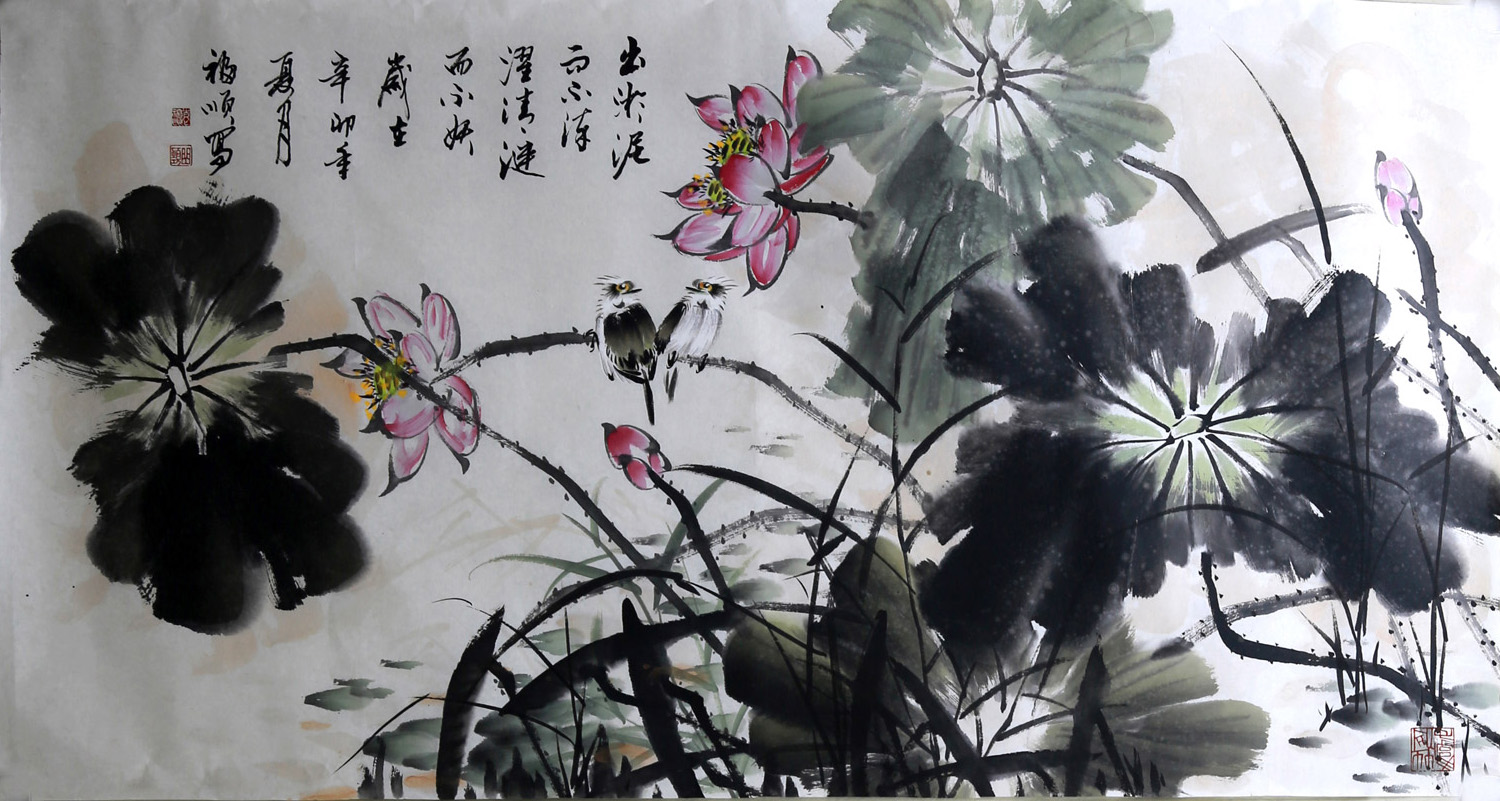 出淤泥
而不染
濯清涟
而不妖
岁在
辛卯年
夏月
福顺写